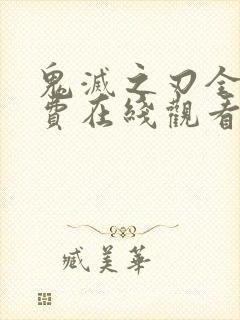 鬼滅之刃全
費在綫觀看
臧美華